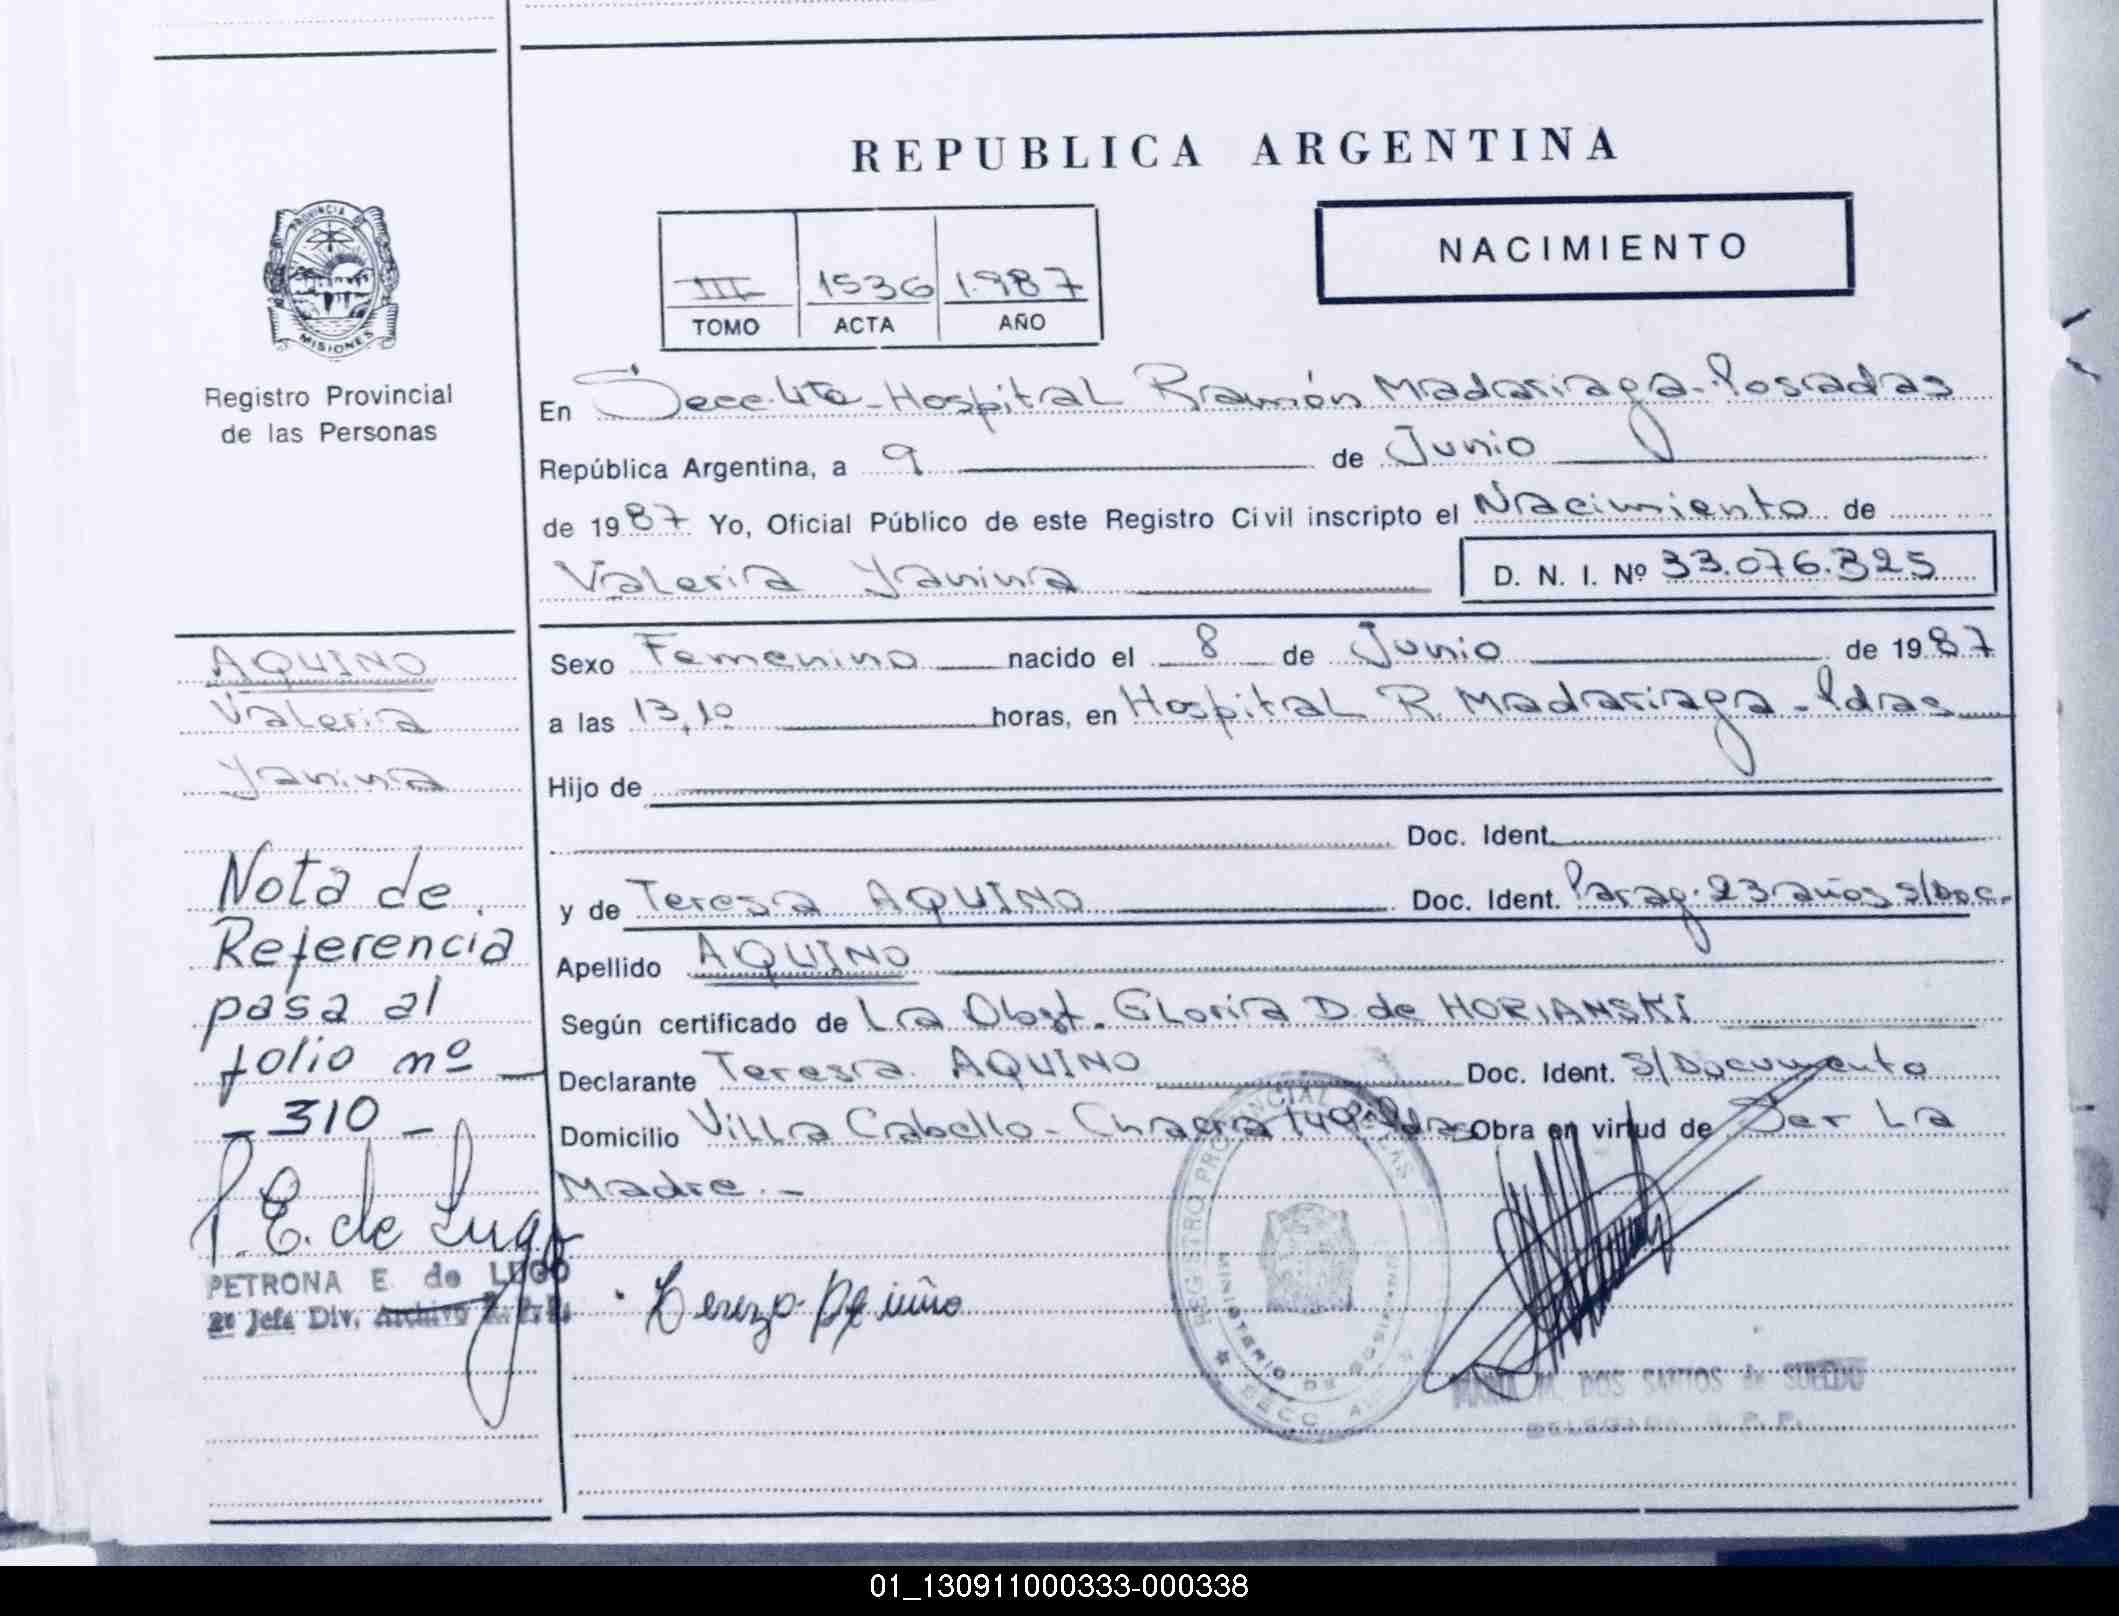 REPUBLICA ARGENTINA
NACIMIENTO
III 1536 1.987
TOMO ACTA AÑO
PROVINCIA DE
MISIONES
Registro Provincial
de las Personas
En Secc. 4ta - Hospital Ramón Madariaga - Posadas
República Argentina, a 9 de Junio
de 1987 Yo, Oficial Público de este Registro Civil inscripto el Nacimiento de
Valeria Yanina
D. N. I. Nº 33.076.325
AQUINO
Valeria
Yanina
Nota de
Referencia
pasa al
folio nº
- 310 -
P. E. de Lugo
PETRONA E. de LUGO
2º Jefa Div. Archivo
Sexo Femenino nacido el 8 de Junio de 1987
a las 13,10 horas, en Hospital R. Madariaga - Pdas
Hijo de
Doc. Ident.
y de Teresa AQUINO Doc. Ident. Parag. 23 años s/Doc.-
Apellido AQUINO
Según certificado de La Obst. Gloria D. de HORIANSKI
Declarante Teresa AQUINO Doc. Ident. S/Documento
Domicilio Villa Cabello - Chacra Obra en virtud de Ser La
Madre. -
REGISTRO PROVINCIAL DE LAS
MINISTERIO DE
SECC.
DOS SANTOS de
DELEGADA R. P. P.
01_130911000333-000338